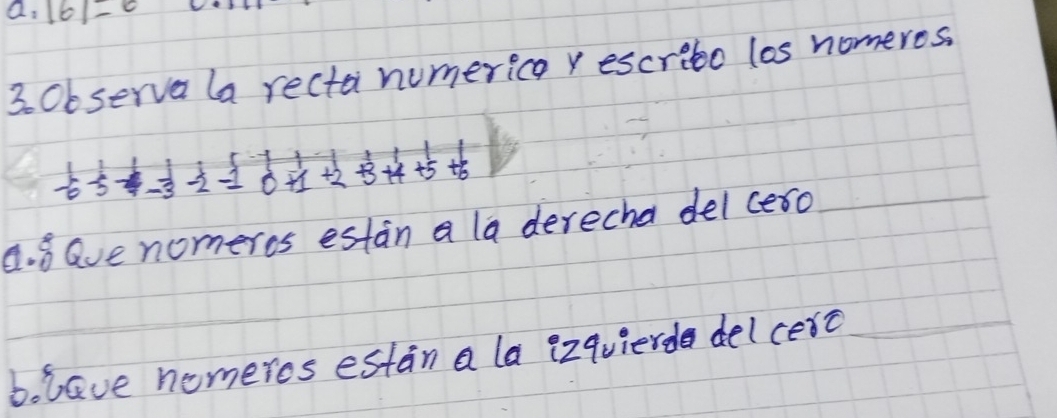 a. |6| = 6
3. Observa la recta numerica y escribo los nomeros.
-6 -5 -4 -3 -2 -1 0 +1 +2 +3 +4 +5 +6
a. ¿Que nomeros están a la derecha del cero
b. ¿Que nomeros están a la izquierda del cero